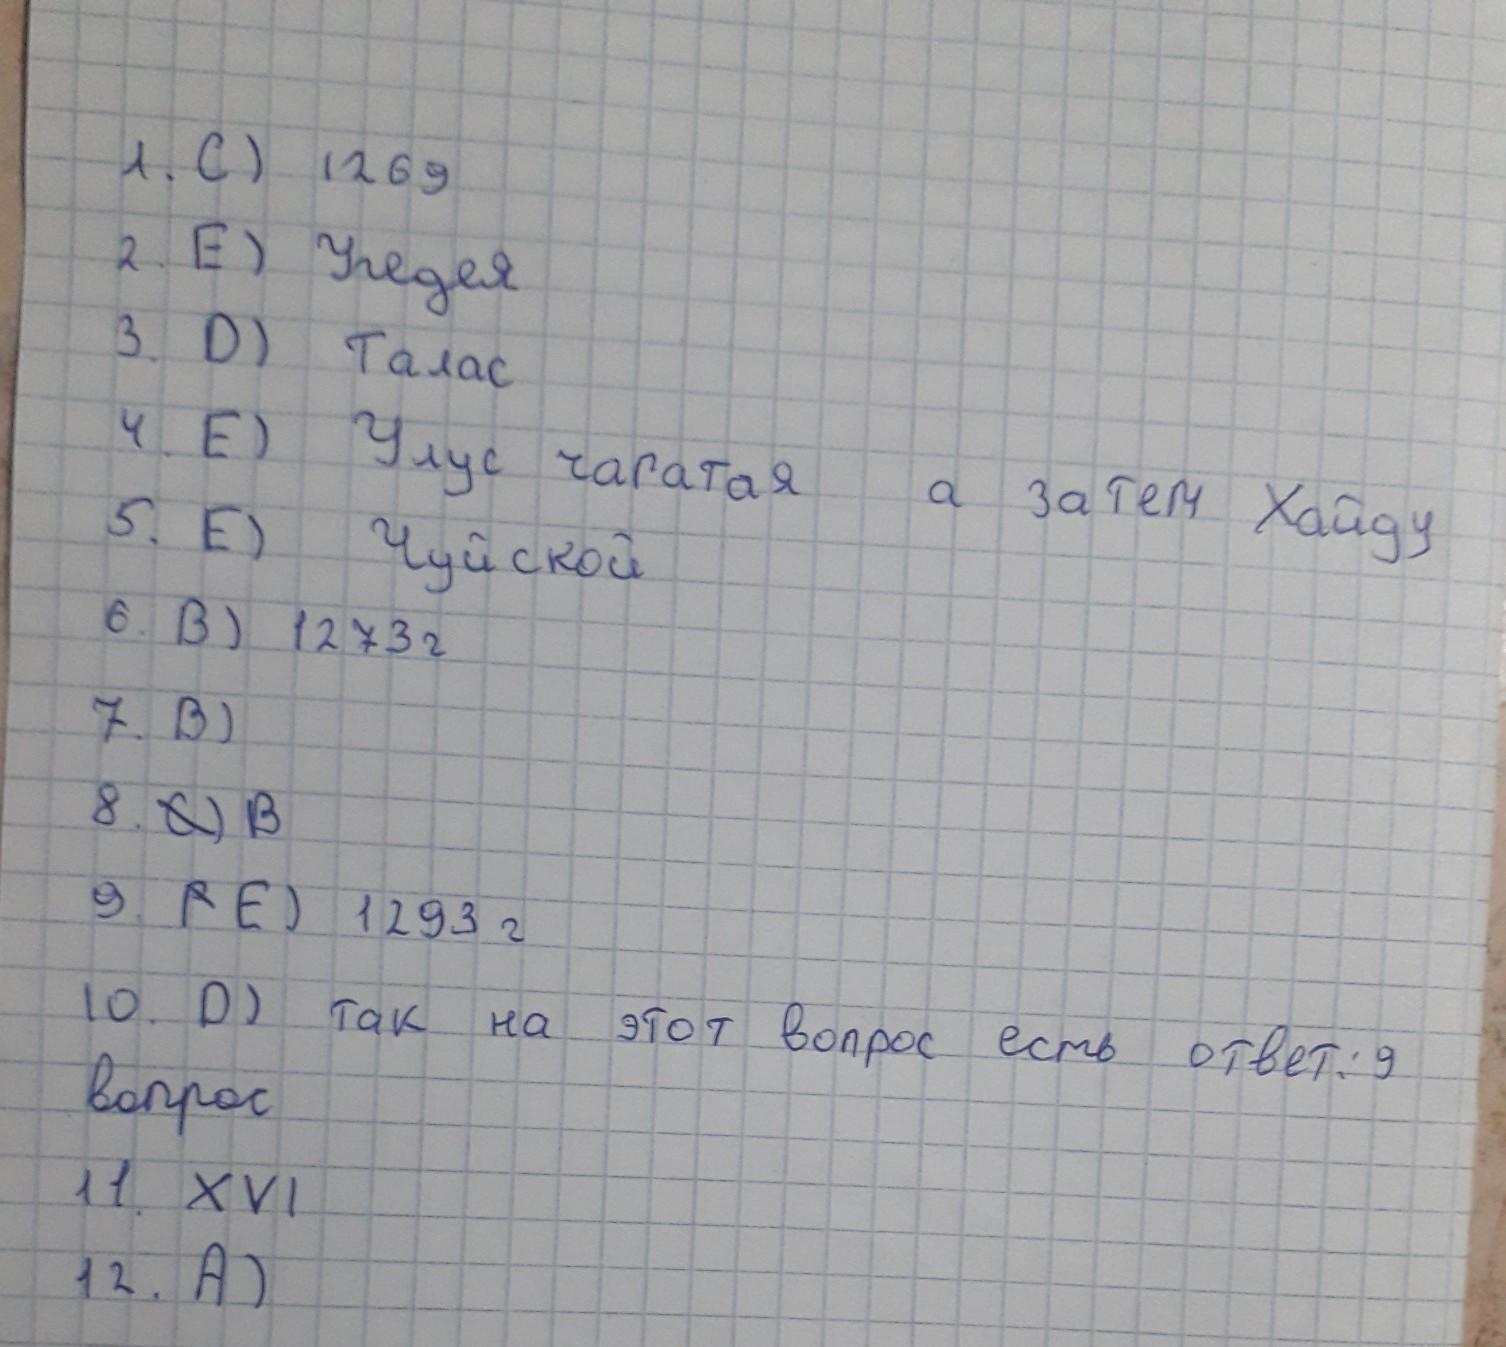 1. C) 1269
2. E) Угедея
3. D) Талас
4. E) Улус чагатая а затем Хайду
5. E) Чуйской
6. B) 1273г
7. B)
8. B
9. E) 1293 г
10. D) так на этот вопрос есть ответ: 9
вопрос
11. XVI
12. A)